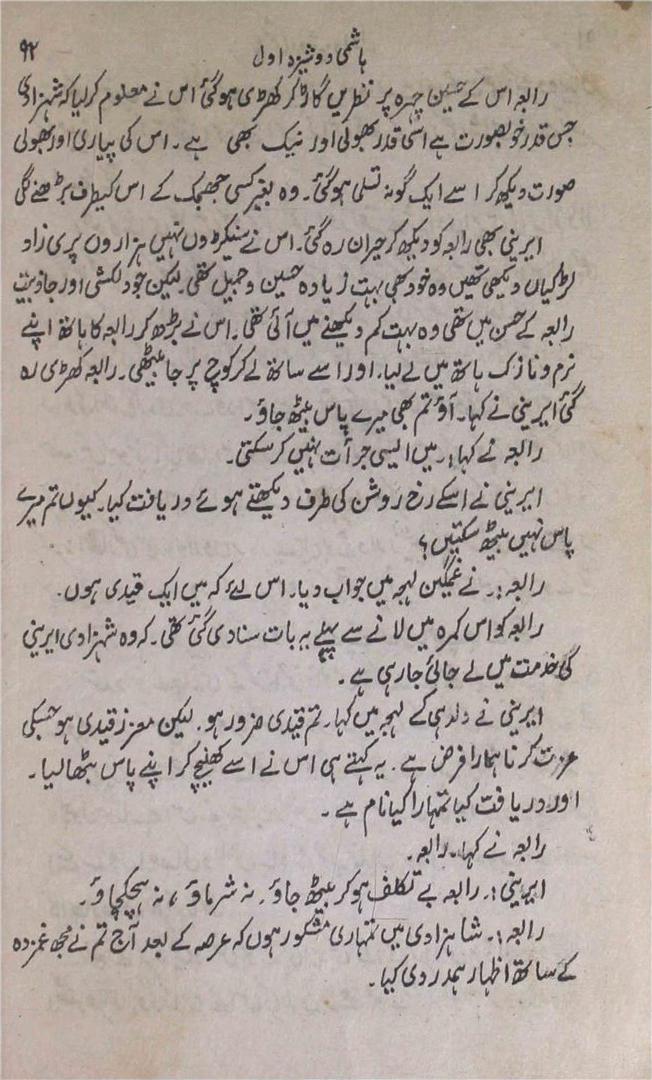 ۹۲
ہاشمی دوشیزہ اول
رابعہ اس کے حسین چہرہ پر نظریں گاڑ کر کھڑی ہو گئی اس نے معلوم کر لیا کہ شہزادی
جس قدر خوبصورت ہے اسی قدر بھولی اور نیک بھی ہے۔ اس کی پیاری اور بھولی
صورت دیکھ کر اسے ایک گونہ تسلی ہو گئی۔ وہ بغیر کسی جھجک کے اس کیطرف بڑھنے لگی
ایرینی بھی رابعہ کو دیکھ کر حیران رہ گئی۔ اس نے سینکڑوں نہیں ہزاروں پری زاد
لڑکیاں دیکھی تھیں وہ خود بھی بہت زیادہ حسین و جمیل تھی۔ لیکن جو دلکشی اور جاذبیت
رابعہ کے حسن میں تھی وہ بہت کم دیکھنے میں آئی تھی۔ اس نے بڑھ کر رابعہ کا ہاتھ اپنے
نرم و نازک ہاتھ میں لے لیا۔ اور اسے ساتھ لے کر کوچ پر جا بیٹھی۔ رابعہ کھڑی رہ
گئی ایرینی نے کہا۔ آؤ تم بھی میرے پاس بیٹھ جاؤ۔
رابعہ نے کہا:۔ میں ایسی جرأت نہیں کر سکتی۔
ایرینی نے اسکے رخ روشن کی طرف دیکھتے ہوئے دریافت کیا۔ کیوں تم میرے
پاس نہیں بیٹھ سکتیں؟
رابعہ:۔ نے غمگین لہجہ میں جواب دیا۔ اس لئے کہ میں ایک قیدی ہوں۔
رابعہ کو اس کمرہ میں لانے سے پہلے یہ بات سنا دی گئی تھی۔ کہ وہ شہزادی ایرینی
کی خدمت میں لے جائی جا رہی ہے۔
ایرینی نے دلدہی کے لہجہ میں کہا۔ تم قیدی ضرور ہو۔ لیکن معزز قیدی ہو جسکی
عزت کرنا ہمارا فرض ہے۔ یہ کہتے ہی اس نے اسے کھینچ کر اپنے پاس بٹھا لیا۔
اور دریافت کیا تمہارا کیا نام ہے۔
رابعہ نے کہا۔ رابعہ۔
ایرینی:۔ رابعہ بے تکلف ہو کر بیٹھ جاؤ۔ نہ شرماؤ، نہ ہچکچاؤ۔
رابعہ:۔ شاہزادی میں تمہاری مشکور ہوں کہ عرصہ کے بعد آج تم نے مجھ غمزدہ
کے ساتھ اظہار ہمدردی کیا۔